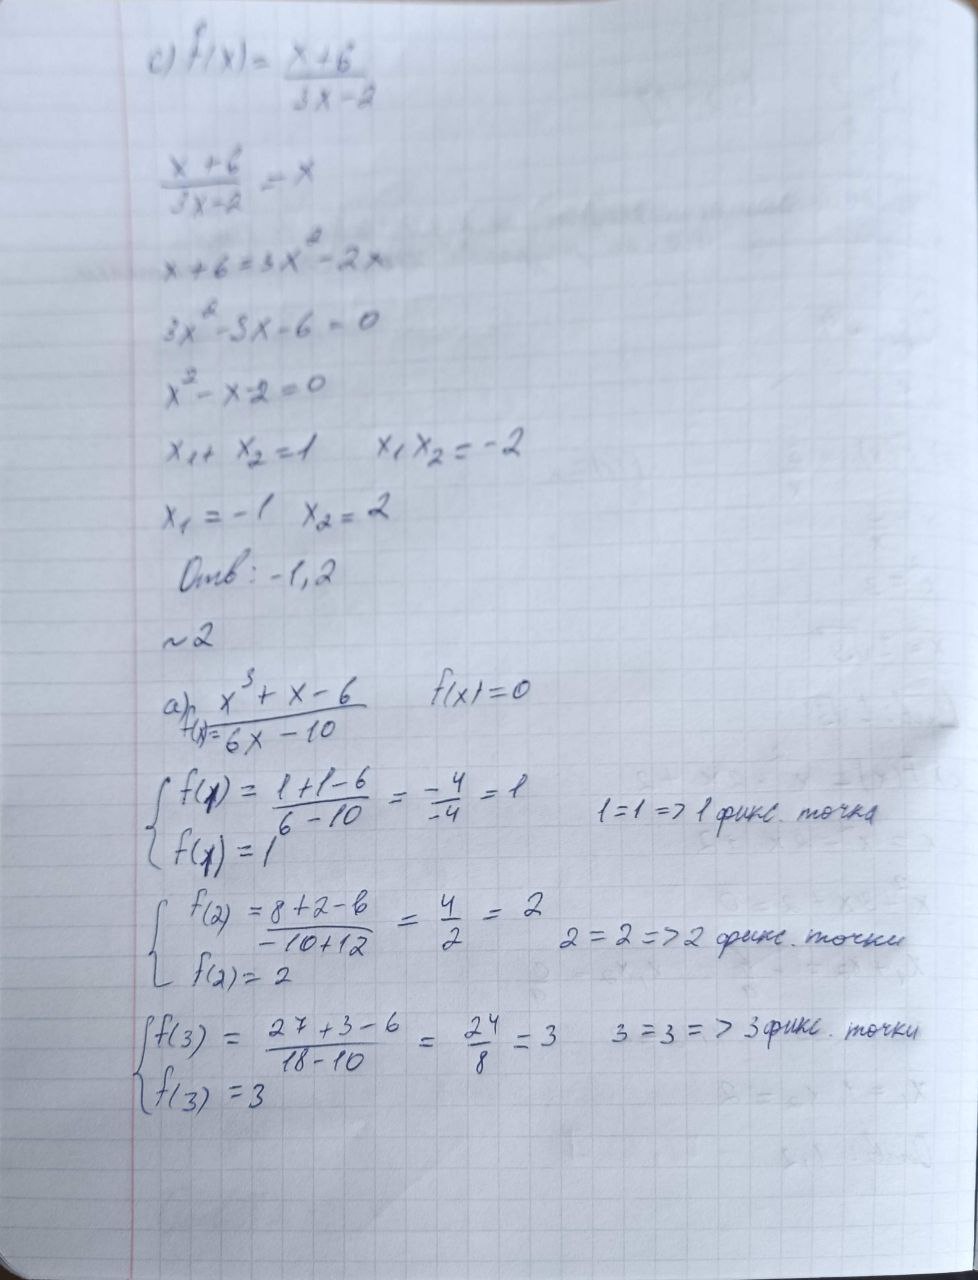 c) f(x) = x+6 / 3x-2
x+6 / 3x-2 = x
x+6=3x²-2x
3x²-3x-6=0
x²-x-2=0
x₁+x₂=1 x₁x₂=-2
x₁=-1 x₂=2
Отв: -1,2
~2
a) f(x)= x³+x-6 / 6x-10 f(x)=0
f(1) = 1+1-6 / 6-10 = -4 / -4 = 1 1=1=>1 фикс. точка
f(1)=1
f(2) = 8+2-6 / -10+12 = 4 / 2 = 2 2=2=>2 фикс. точки
f(2)=2
f(3) = 27+3-6 / 18-10 = 24 / 8 = 3 3=3=>3 фикс. точки
f(3)=3